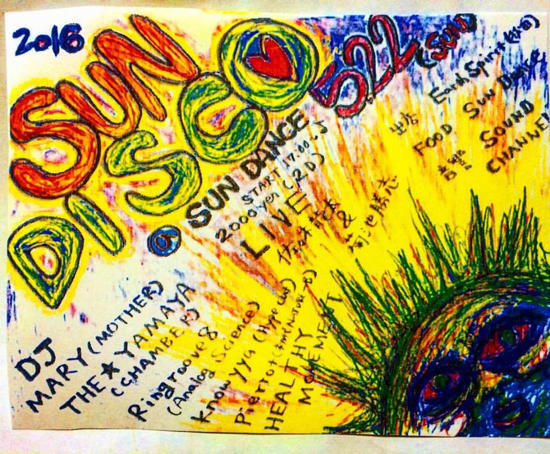 2016
SUN
DISCO
522 (SUN)
@ SUN DANCE
START 17:00~
2000yen (2D)
LIVE
&
Earth Spirit
FOOD SUN Dance
音響 SOUND
CHANNEL
DJ
MARY (MOTHER)
THE★YAMAYA
(CHAMBER)
Ringroove8
(Analog Science)
Know yya (Hype up)
Pierrot
HEALTHY
MOVEMENT